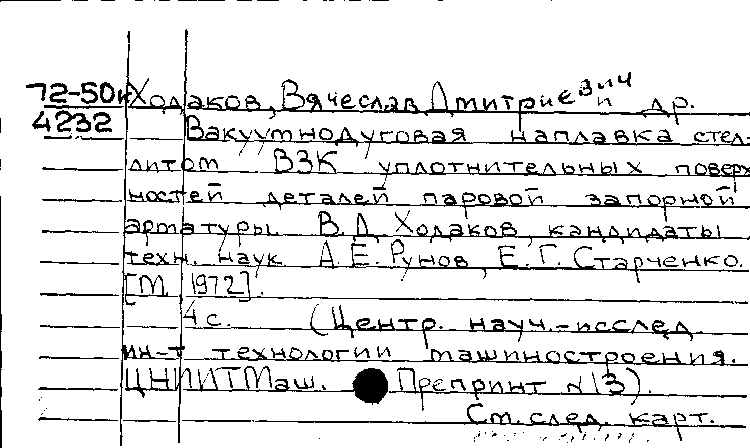 72-50к Ходаков, Вячеслав Дмитриевич и др.
4232 Вакуумнодуговая наплавка стел-
литом ВЗК уплотнительных поверх
ностей деталей паровой запорной
арматуры В.Д. Ходаков, кандидаты
техн. наук А.Е. Рунов, Е.Г. Старченко.
[М. 1972].
4 с. (Центр. науч.-исслед.
ин-т технологии машиностроения.
ЦНИИТМаш. Препринт №13).
См. след. карт.